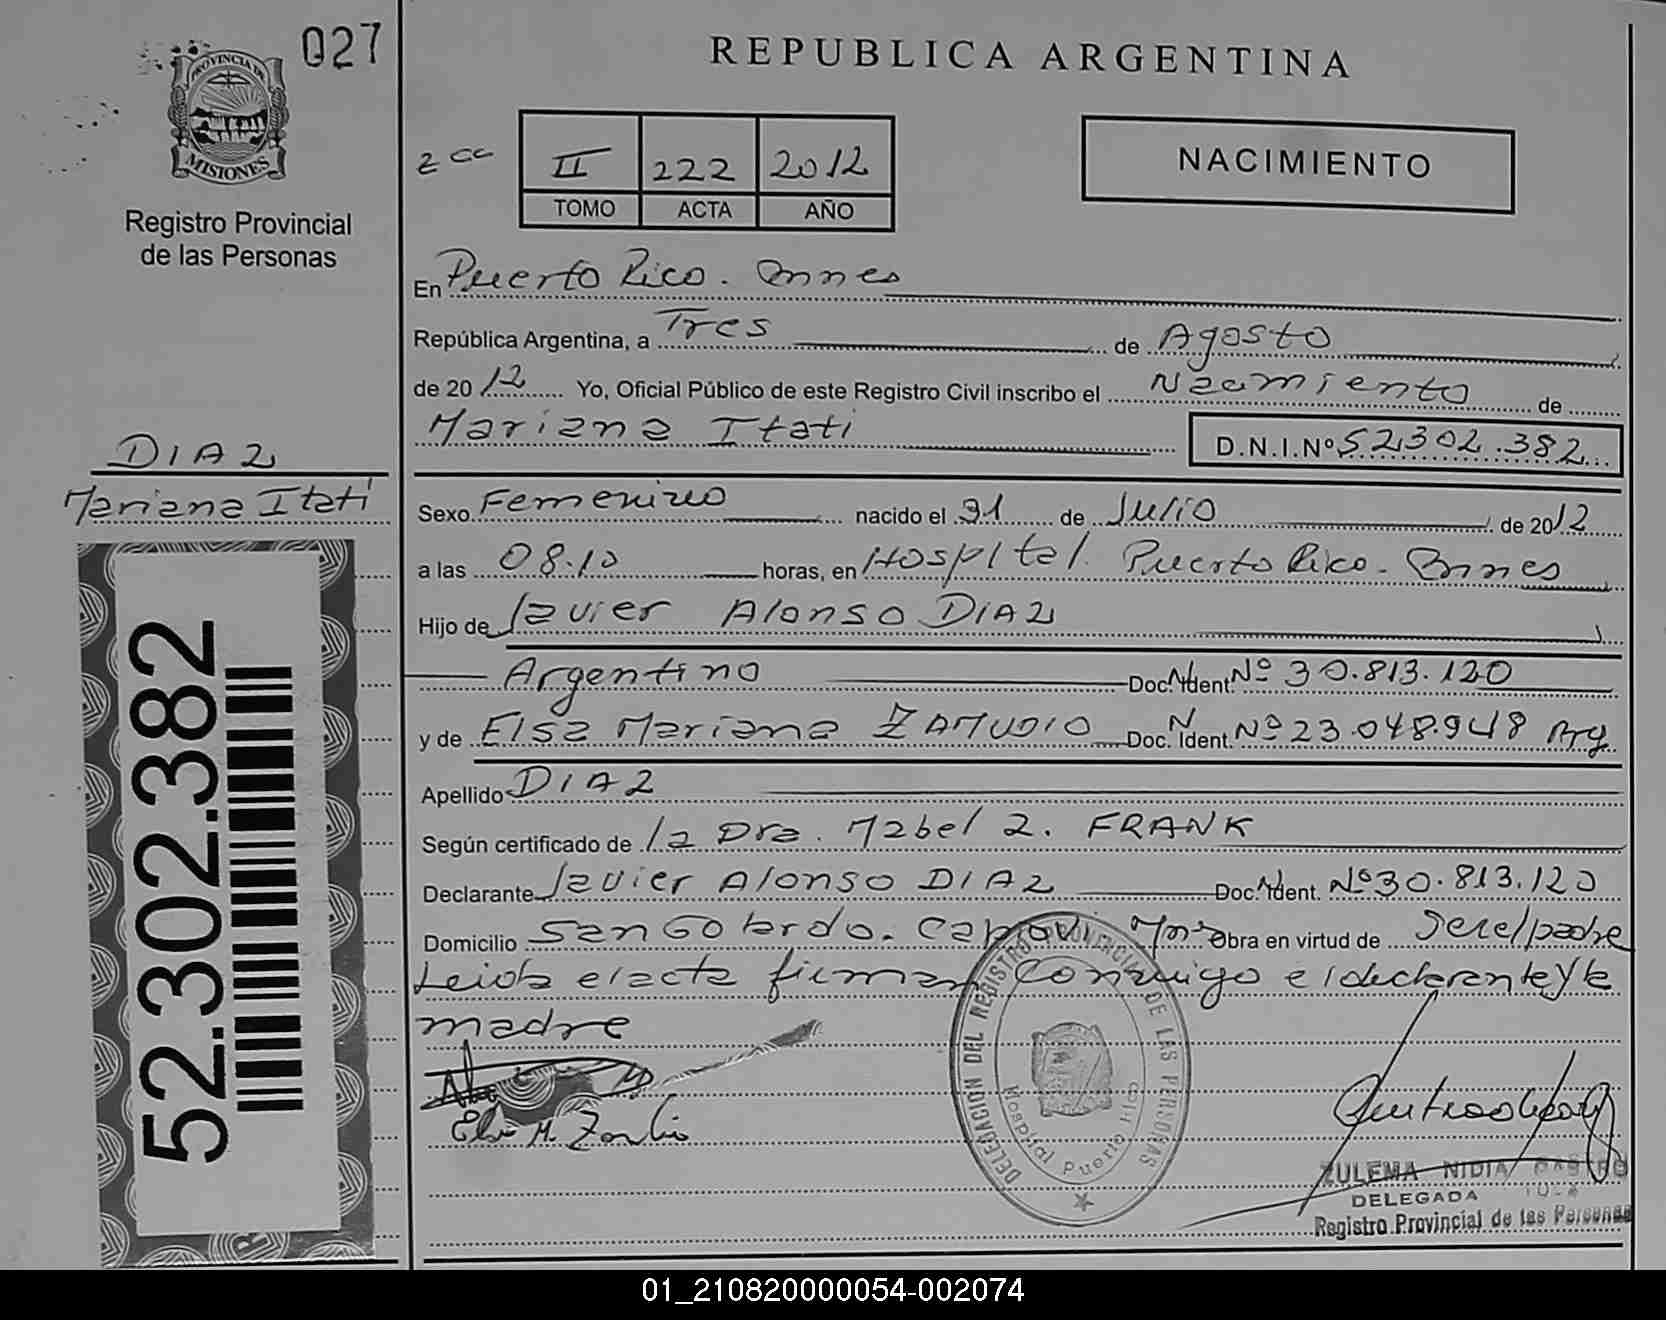 027
PROVINCIA DE
MISIONES
Registro Provincial
de las Personas
REPUBLICA ARGENTINA
2 cc
II 222 2012
TOMO ACTA AÑO
NACIMIENTO
En Puerto Rico. Mnes
República Argentina, a Tres de Agosto
de 2012 Yo, Oficial Público de este Registro Civil inscribo el Nacimiento de
Mariana Itati D.N.I.Nº 52.302.382
DIAZ
Mariana Itati
Sexo Femenino nacido el 31 de Julio de 2012
a las 08.10 horas, en Hospital. Puerto Rico. Mnes
Hijo de Javier Alonso DIAZ
Argentino Doc. Ident. Nº 30.813.120
y de Elsa Mariana ZAMUDIO Doc. Ident. Nº 23.048.948 Arg
Apellido DIAZ
Según certificado de la Dra. Mabel Z. FRANK
Declarante Javier Alonso DIAZ Doc. Ident. Nº 30.813.120
Domicilio San Gotardo. Capiovi Mnes Obra en virtud de Ser el padre
Leida el acta firman Conmigo el declarante y la
madre
52.302.382
DELEGACIÓN DEL REGISTRO PROVINCIAL DE LAS PERSONAS
Hospital Puerto Rico
ZULEMA NIDIA
DELEGADA
Registro Provincial de las Personas
01_210820000054-002074